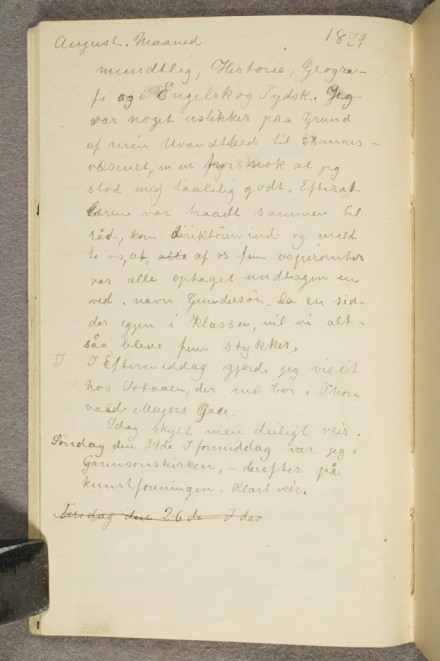 August. Maaned 1879
mundtlig, Historie, Geogra-
fi og i Engelsk og Tydsk. Jeg
var noget usikker paa Grund
af min Uvandthed til
men nok at jeg
stod mig taalelig godt. Efterat
Lærene var traadt sammen til
råd, kom direktören ind og meldt
te os, at, alle af os fem aspiranter
var alle optaget undtagen en
ved. navn Gundersön. Da en sid-
der igjen i Klassen, vil vi alt-
såa blive fem stykker.
I Eftermiddag gjorde jeg visit
hos der nu bor i Thor-
vald Meyers Gade.
Idag skyet men deiligt veir.
Söndag den 24de I formiddag var jeg i
Garnisonskirken, – derefter på
kunstforeningen. Klart veir.
Tirsdag den 26de I dag